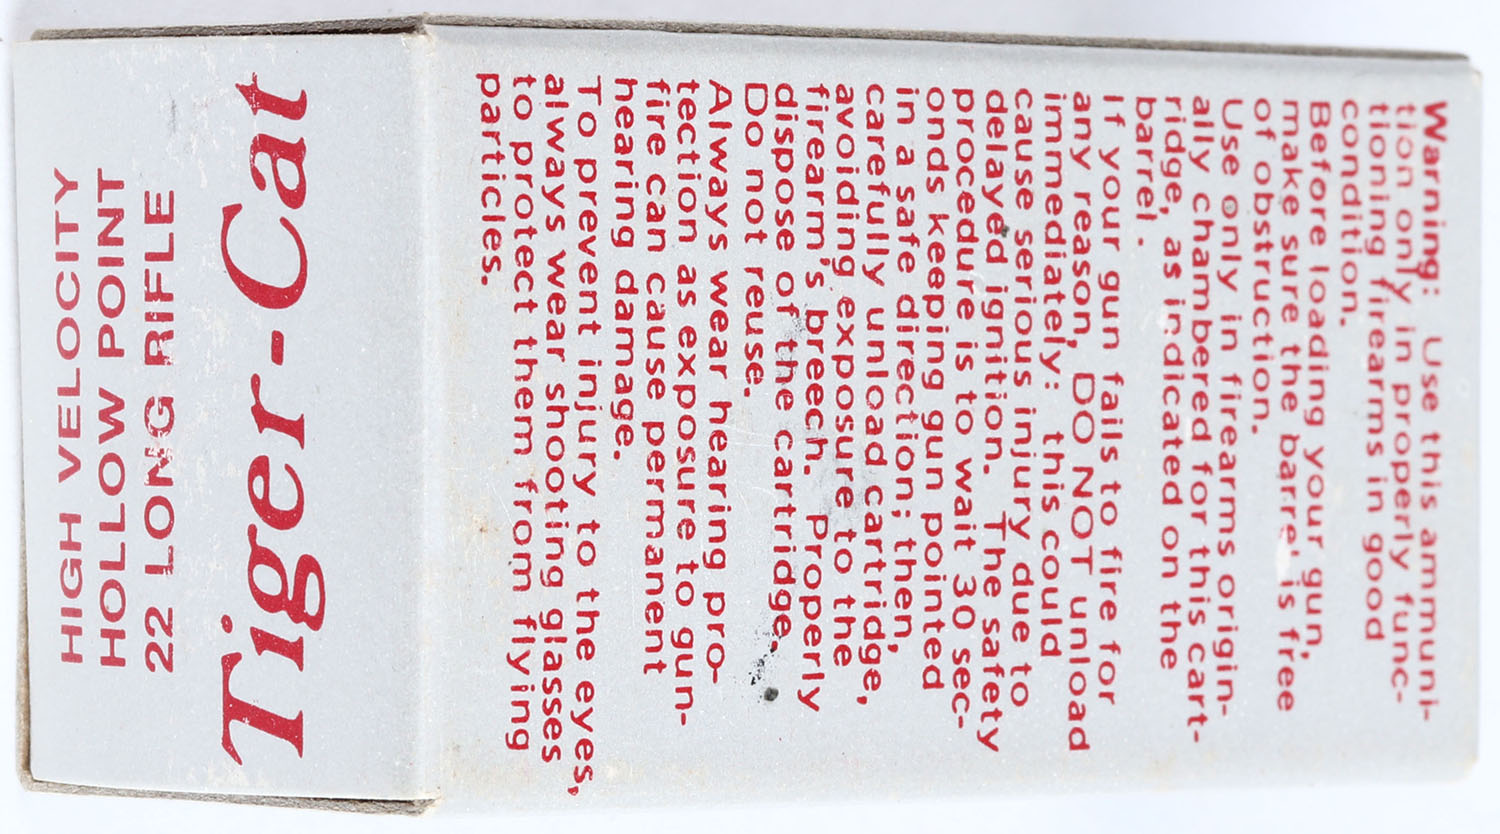 HIGH VELOCITY
HOLLOW POINT
22 LONG RIFLE
Tiger-Cat
Warning: Use this ammuni-
tion only in properly func-
tioning firearms in good
condition.
Before loading your gun,
make sure the barrel is free
of obstruction.
Use only in firearms origin-
ally chambered for this cart-
ridge, as indicated on the
barrel.
If your gun fails to fire for
any reason, DO NOT unload
immediately: this could
cause serious injury due to
delayed ignition. The safety
procedure is to wait 30 sec-
onds keeping gun pointed
in a safe direction; then,
carefully unload cartridge,
avoiding exposure to the
firearm's breech. Properly
dispose of the cartridge.
Do not reuse.
Always wear hearing pro-
tection as exposure to gun-
fire can cause permanent
hearing damage.
To prevent injury to the eyes,
always wear shooting glasses
to protect them from flying
particles.